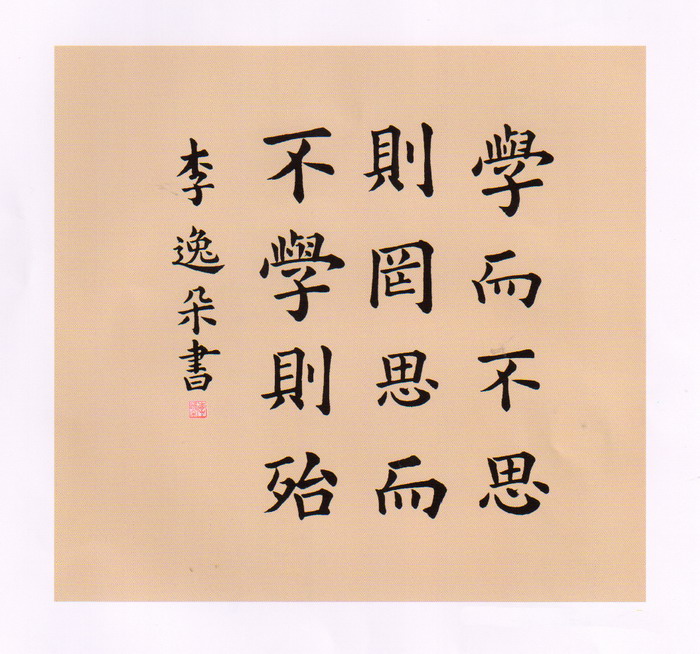 學而不思
則罔思而
不學則殆
李逸朵書